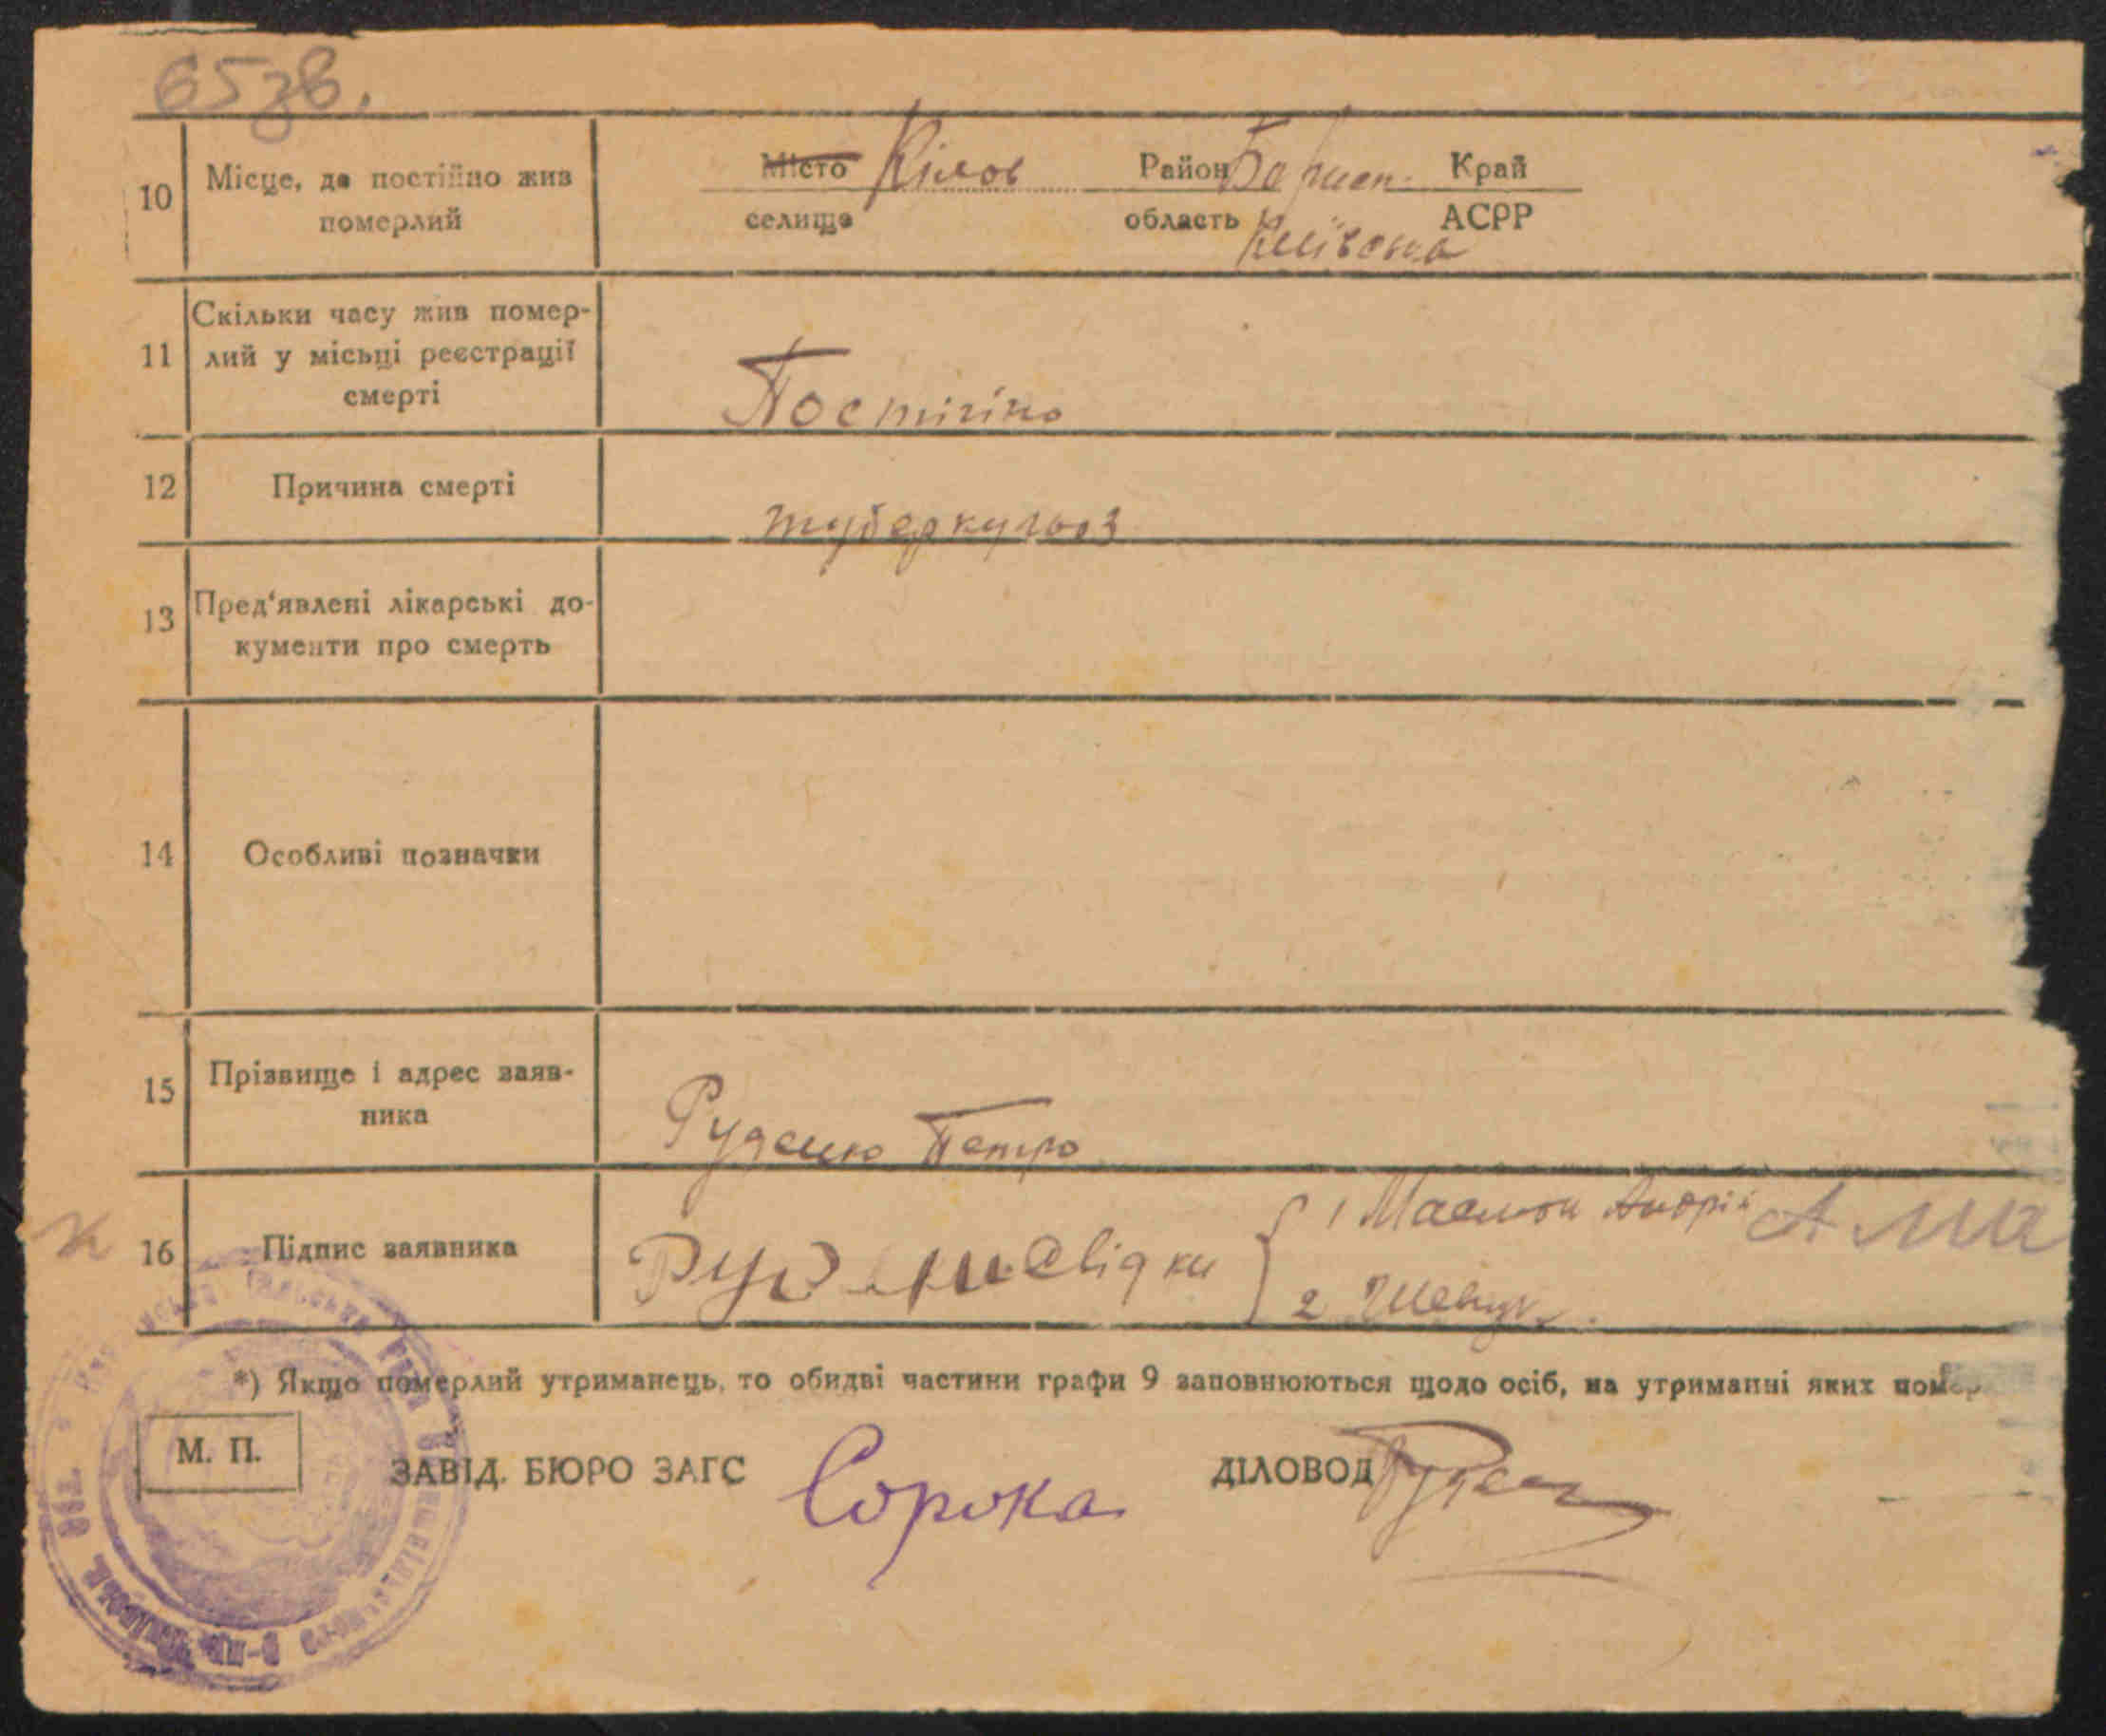 65зв.
10 Місце, де постійно жив померлий
Місто Кілов Район Борисп. Край
селище область Київська АСРР
11 Скільки часу жив помер-
лий у місьці реєстрації
смерті
Постійно
12 Причина смерті
туберкульоз
13 Пред‘явлені лікарські до-
кументи про смерть
14 Особливі позначки
15 Прізвище і адрес заяв-
ника
Руденко Петро
16 Підпис заявника
свідки 1 Андрій
2
*) Якщо померлий утриманець, то обидві частини графи 9 заповнюються щодо осіб, на утриманні яких помер
М. П.
ЗАВІД. БЮРО ЗАГС Сорока ДІЛОВОД